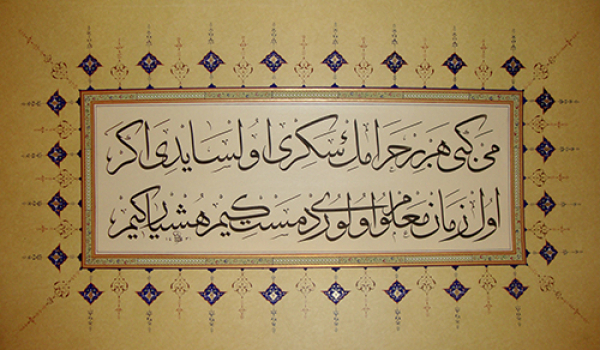 می كبی هر بر حرامك سكری اولسايدی اكر
اول زمان معلوم اولوردی مست كيم هشيار كيم